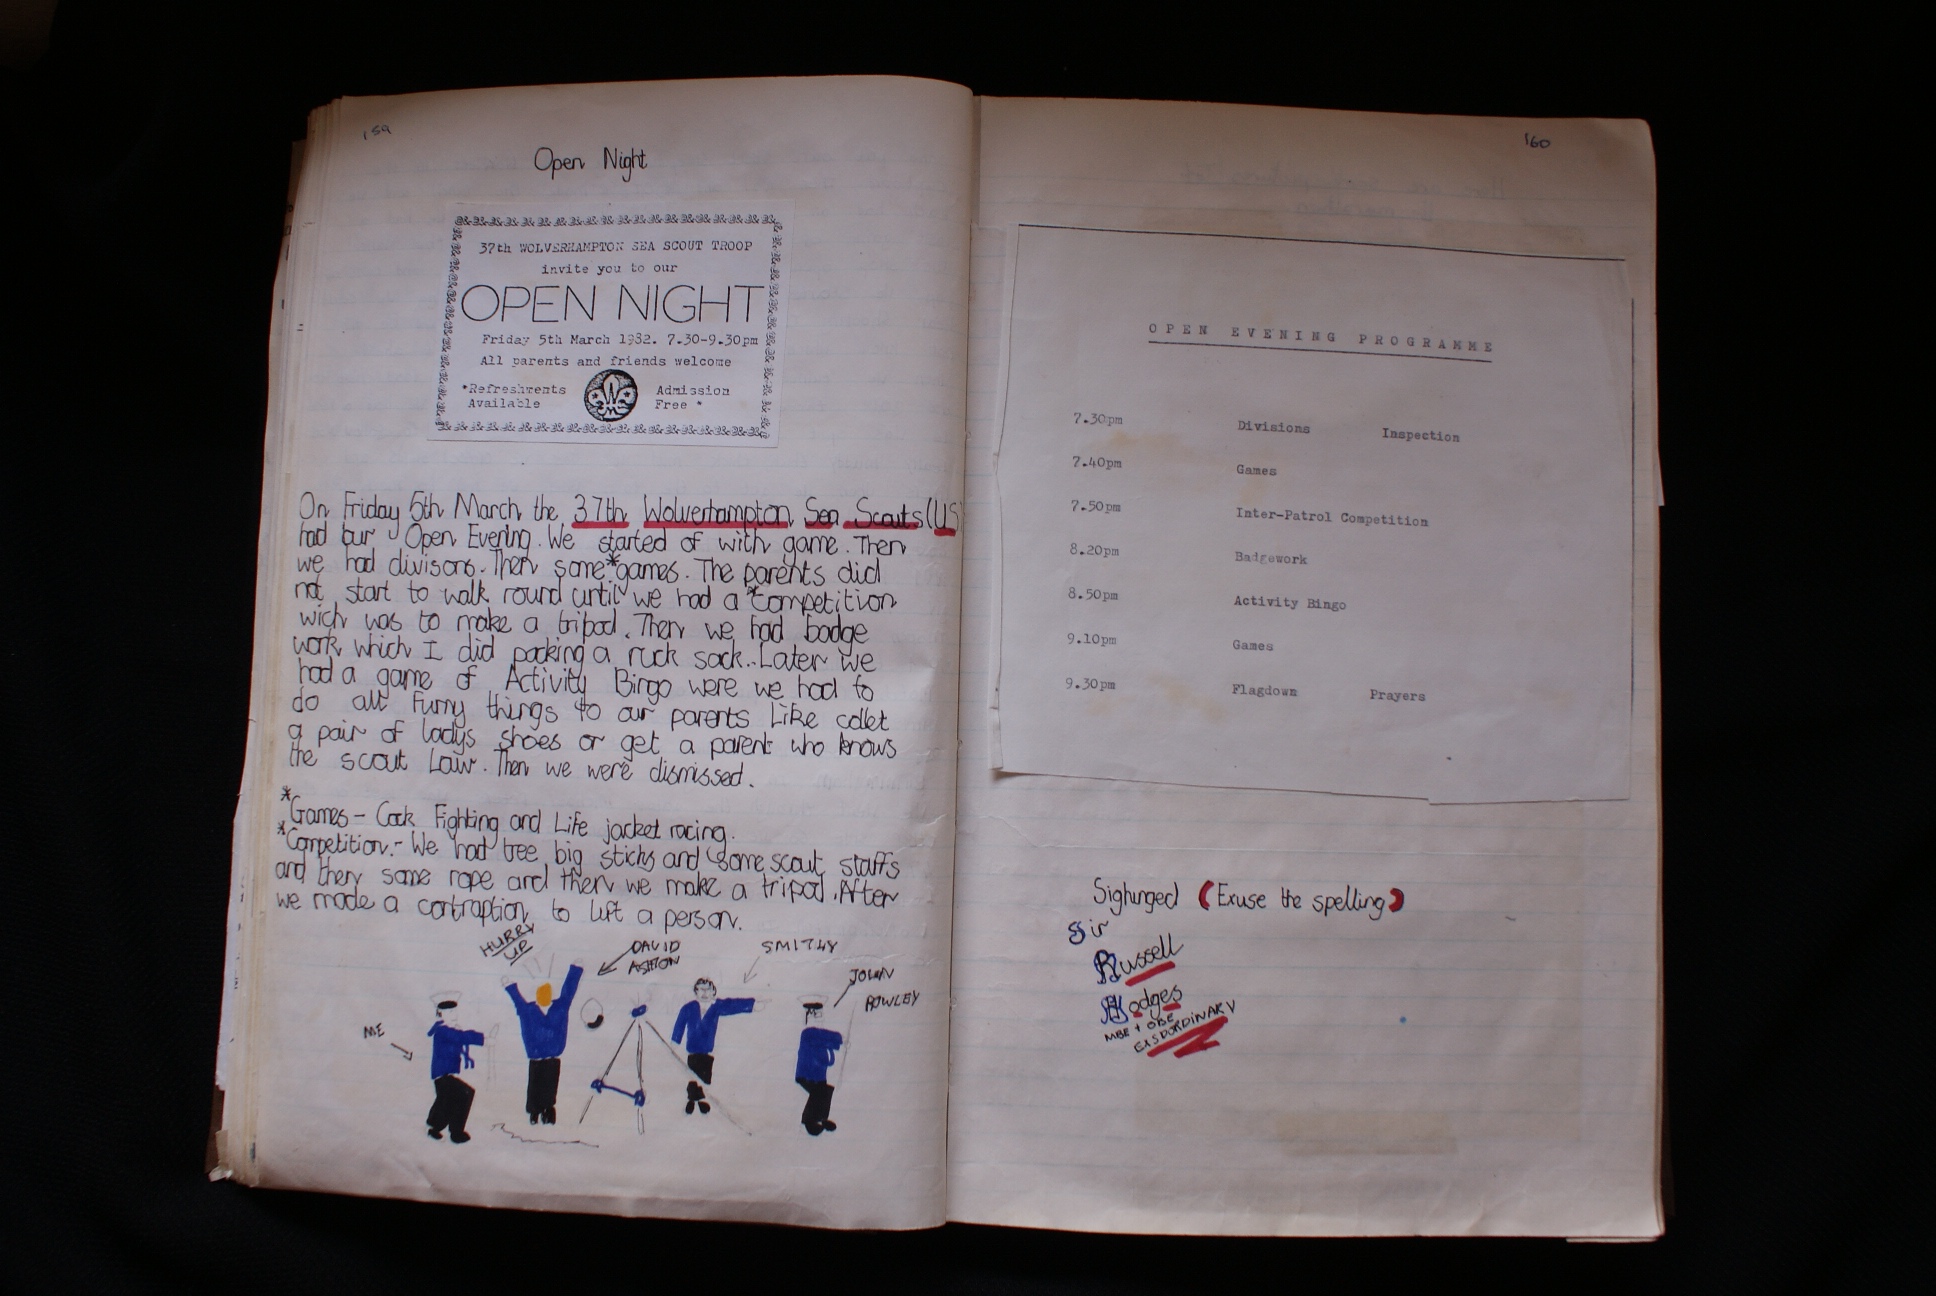 159
Open Night
37th WOLVERHAMPTON SEA SCOUT TROOP
invite you to our
OPEN NIGHT
Friday 5th March 1982. 7.30-9.30pm
All parents and friends welcome
*Refreshments Available
Admission Free *
On Friday 5th March the 37th Wolverhampton Sea Scouts (US)
had our Open Evening. We started of with game. Then
we had divisons. Then some *games. The parents did
not start to walk round until we had a *Competition
wich was to make a tripod. Then we had badge
work which I did packing a ruck sack.. Later we
had a game of Activity Bingo were we had to
do all funny things to our parents Like collet
a pair of ladys shoes or get a parent who knows
the scout Law. Then we were dismissed.
*Games - Cock Fighting and Life jacket racing.
*Competition.- We had tree big sticks and some scout staffs
and then some rope and then we make a tripod. After
we made a contraption to lift a person.
HURRY
UP
DAVID
ASHTON
SMITHY
JOHN
ROWLEY
ME
160
OPEN EVENING PROGRAMME
7.30pm Divisions Inspection
7.40pm Games
7.50pm Inter-Patrol Competition
8.20pm Badgework
8.50pm Activity Bingo
9.10pm Games
9.30pm Flagdown Prayers
Sighunged (Exuse the spelling)
Sir
Russell
Hodges
MBE + OBE